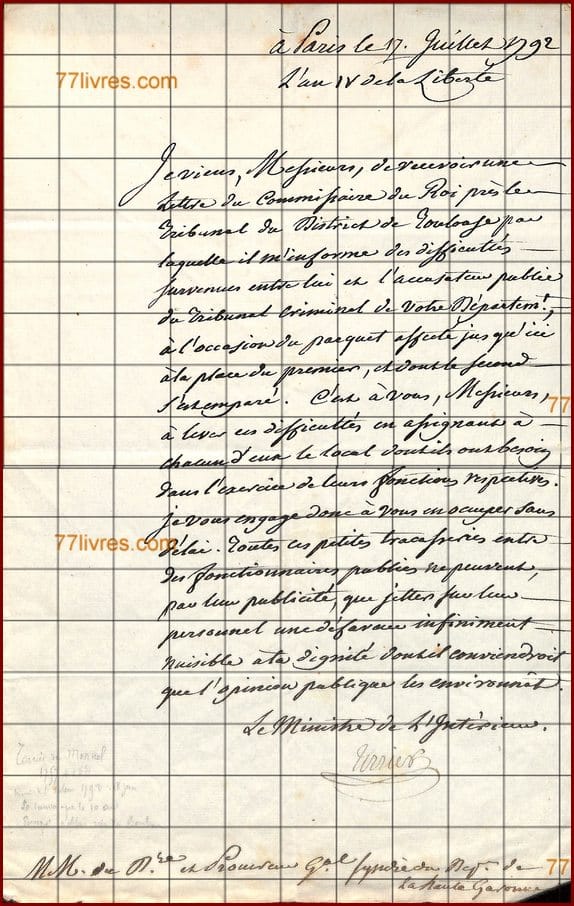 à Paris le 17. Juillet 1792
L'an IV de la Liberté
77livres.com
Je viens, Messieurs, de recevoir une
Lettre du Commissaire du Roi près le
Tribunal du District de Toulouse par
laquelle il m'informe des difficultés
survenues entre lui et l'accusateur public
du Tribunal Criminel de votre Départemt.,
à l'occasion du parquet affecté jusqu'ici
à la place du premier, et dont le second
s'est emparé. C'est à vous, Messieurs,
77
à lever ces difficultés en assignant à
chacun d'eux le local dont ils ont besoin
dans l'exercice de leurs fonctions respectives.
je vous engage donc à vous en occuper sans
77livres.com
délai. Toutes ces petites tracasseries entre
des fonctionnaires publics ne peuvent,
par leur publicité, que jetter sur leur
personnel une défaveur infiniment
nuisible à la dignité dont il conviendroit
que l'opinion publique les environnât.
Le Ministre de L'Intérieur.
Terrier
1792
MM. du Dre. et Procureur Gal. Syndic du Dept. de
77
la haute Garonne